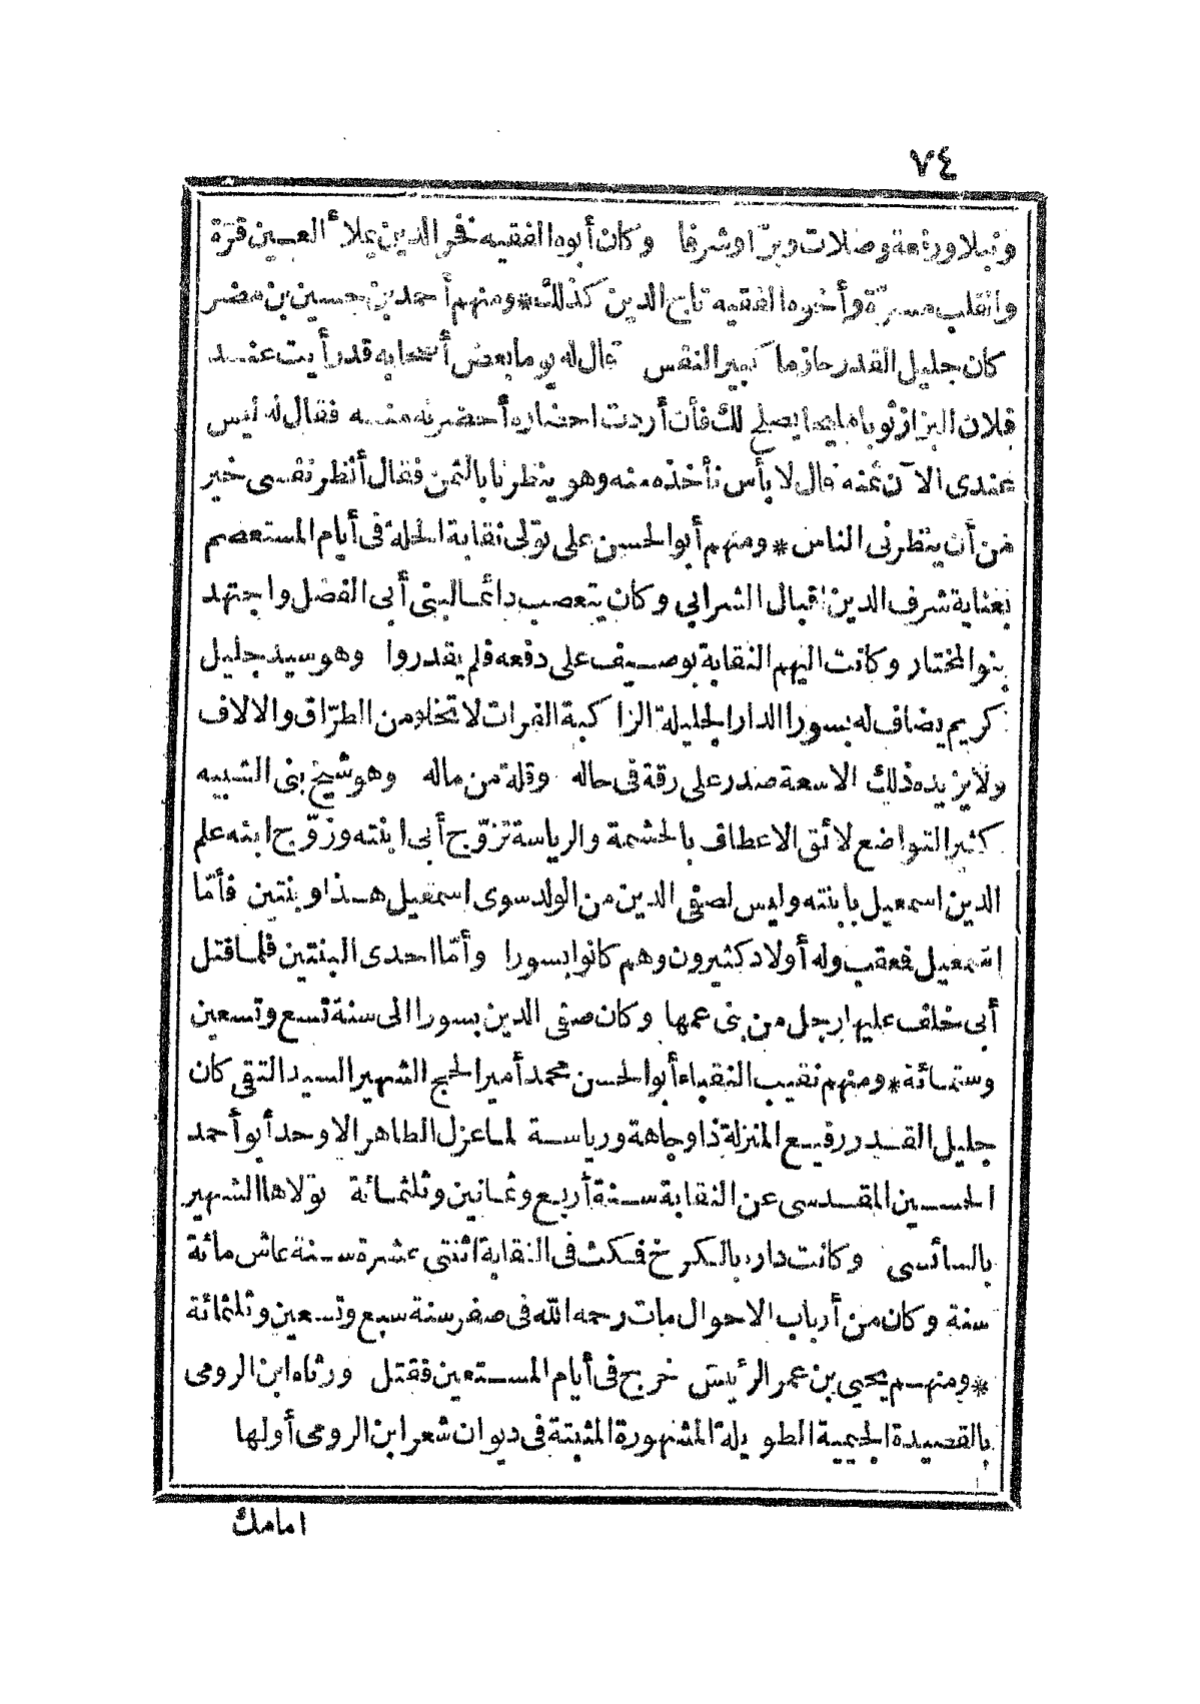 ٧٤
ونبلا ورفعة وصلات وبرّا وشرفا وكان أبوه الفقيه فخر الدين يملأ العين قرّة
والقلب مسرّة وأخوه الفقيه تاج الدين كذلك * ومنهم أحمد بن حسين بن مضر
كان جليل القدر حازما كبير النفس قال له يوما بعض أصحابه قد رأيت عند
فلان البزاز ثوبا مليحا يصلح لك فأن أردت احضاره أحضرته منه فقال له ليس
عندى الآن ثمنه قال لا بأس نأخذه منه وهو ينظرنا بالثمن فقال أنظر نفسى خير
من أن ينظرنى الناس * ومنهم أبو الحسن على تولى نقابة الحلة فى أيام المستعصم
بعناية شرف الدين اقبال الشرابي وكان يتعصب دائما لبنى أبى الفضل واجتهد
بنو المختار وكانت اليهم النقابة بوصيف على دفعه فلم يقدروا وهو سيد جليل
كريم يضاف له بسورا الدار الجليلة الراكبة الفرات لا تخلو من الطرّاق والالاف
ولا يزيده ذلك الاسعة صدر على رقة فى حاله وقلة من ماله وهو شيخ بنى الشبيه
كثير التواضع لائق الاعطاف بالحشمة والرياسة تزوّج أبى ابنته وزوّج ابنه علم
الدين اسمعيل بابنته وليس لصفى الدين من الولد سوى اسمعيل هذا وبنتين فأمّا
اسمعيل فعقب وله أولاد كثيرون وهم كانوا بسورا وأمّا احدى البنتين فلما قتل
أبى خلف عليها رجل من بنى عمها وكان صفى الدين بسورا الى سنة تسع وتسعين
وستمائة * ومنهم نقيب النقباء أبو الحسن محمد أمير الحج الشهير السيد التقى كان
جليل القدر رفيع المنزلة ذا وجاهة ورياسة لما عزل الطاهر الاوحد أبو أحمد
الحسين المقدسى عن النقابة سنة أربع وثمانين وثلثمائة تولاها الشهير
بالسائسى وكانت داره بالكرخ فمكث فى النقابة اثنتى عشرة سنة عاش مائة
سنة وكان من أرباب الاحوال مات رحمه الله فى صفر سنة سبع وتسعين وثلثمائة
* ومنهم يحيى بن عمر الرئيس خرج فى أيام المستعين فقتل ورثاه ابن الرومى
بالقصيدة الجيمية الطويلة المشهورة المثبتة فى ديوان شعر ابن الرومى أولها
امامك